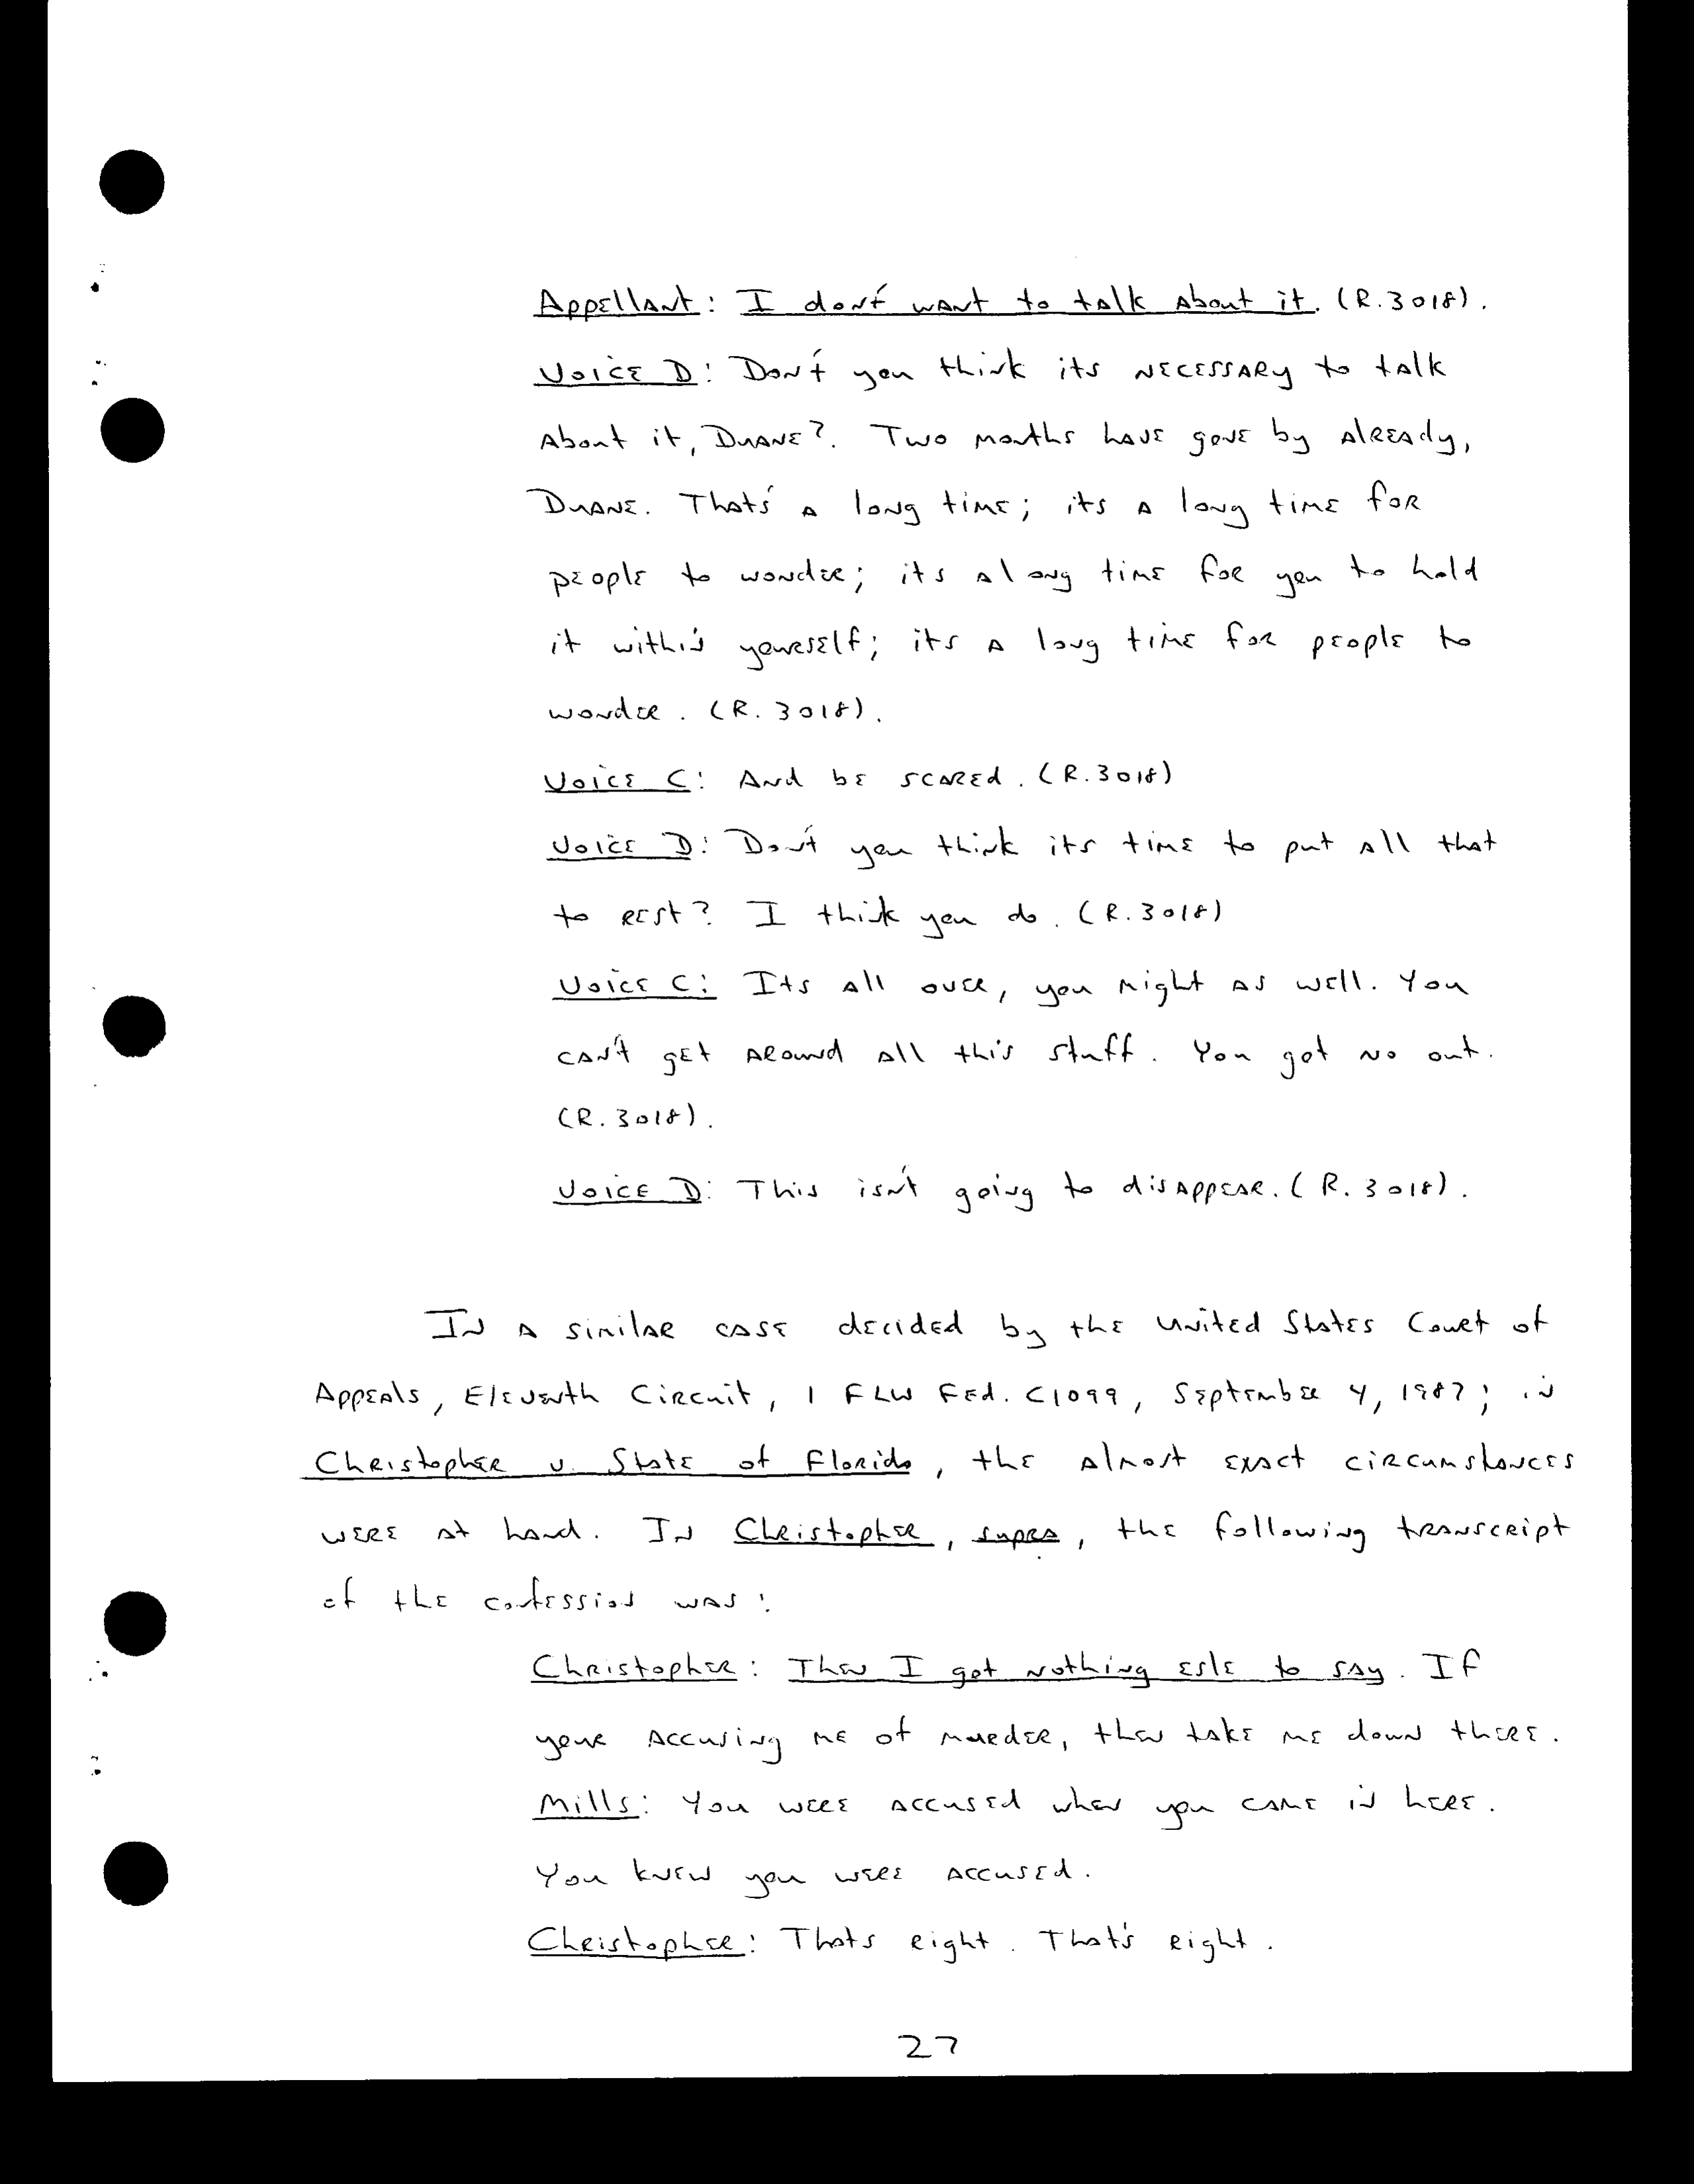 Appellant: I don't want to talk about it. (R.3018).
Voice D: Don't you think its necessary to talk
about it, Duane?. Two months have gone by already,
Duane. That's a long time; its a long time for
people to wonder; its a long time for you to hold
it within yourself; its a long time for people to
wonder. (R. 3018).
Voice C: And be scared. (R.3018)
Voice D: Don't you think its time to put all that
to rest? I think you do. (R.3018)
Voice C: Its all over, you might as well. You
can't get around all this stuff. You got no out.
(R. 3018).
Voice D: This isn't going to disappear. (R. 3018).
In a similar case decided by the United States Court of
Appeals, Eleventh Circuit, 1 FLW Fed. C1099, September 4, 1987; in
Christopher v. State of Florida, the almost exact circumstances
were at hand. In Christopher, supra, the following transcript
of the confession was:
Christopher: Then I got nothing esle to say. If
your accusing me of murder, then take me down there.
Mills: You were accused when you came in here.
You knew you were accused.
Christopher: Thats right. That's right.
27